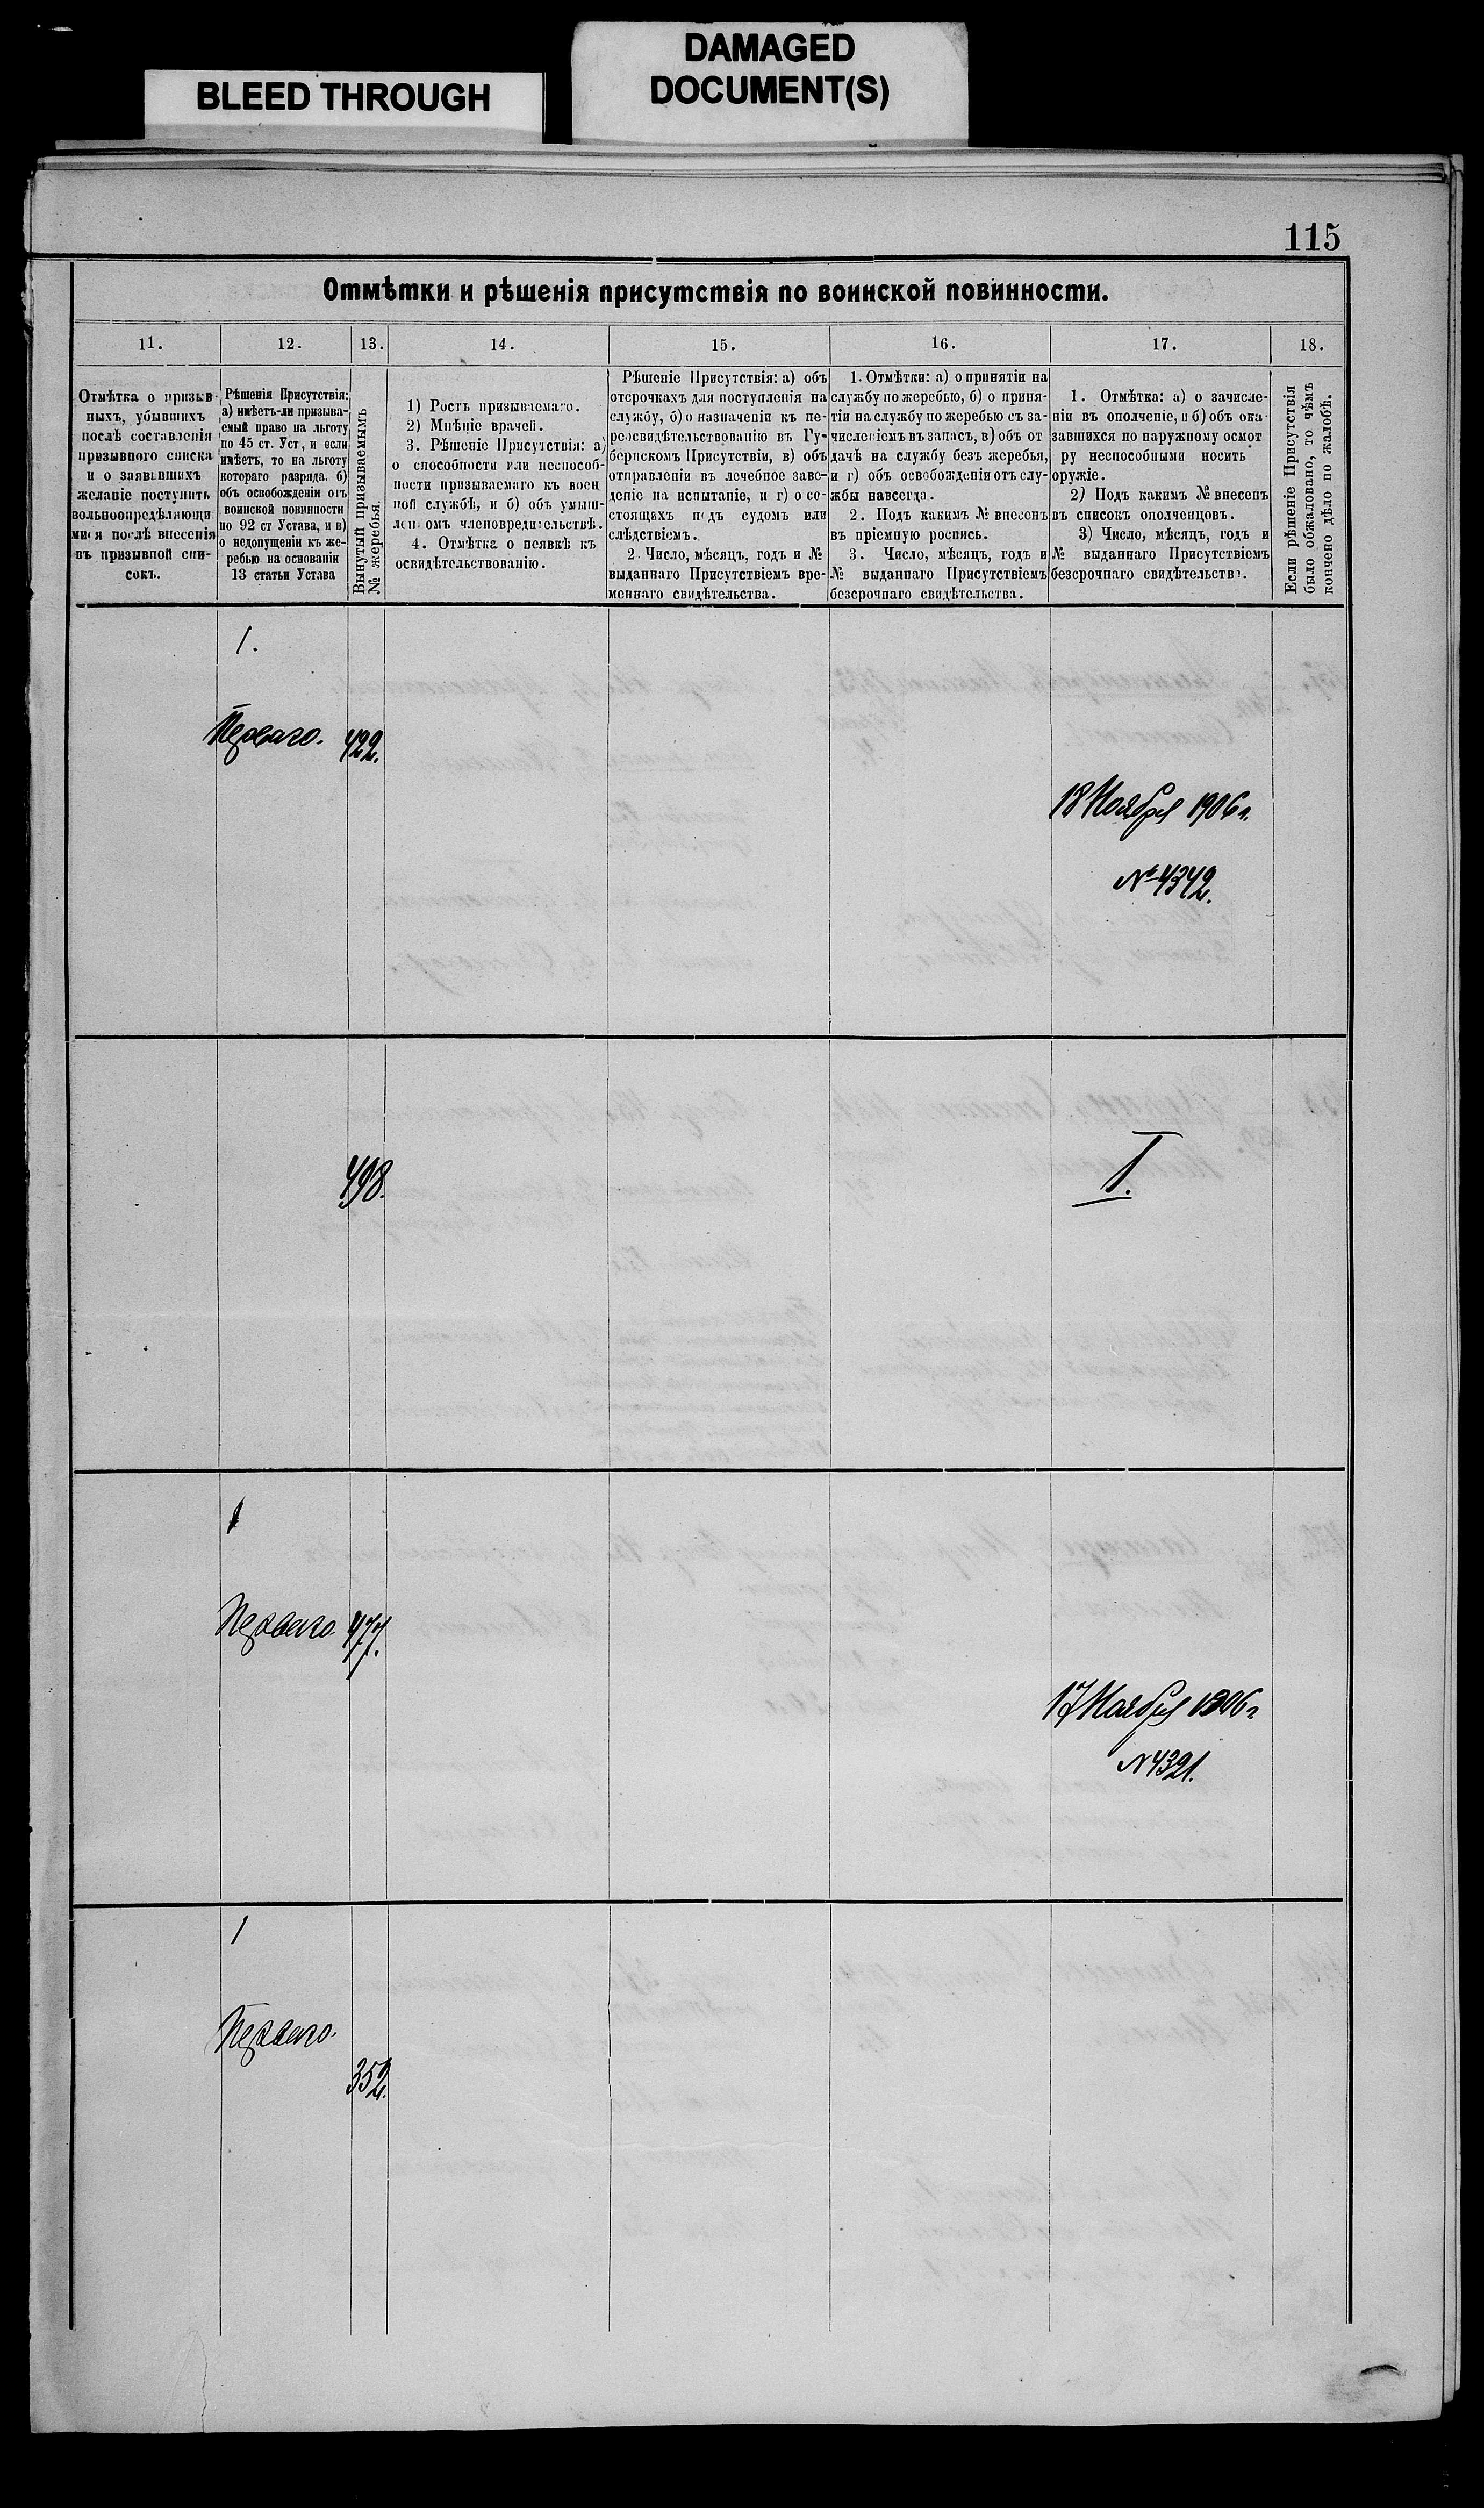 BLEED THROUGH
DAMAGED
DOCUMENT(S)
115
Отмѣтки и рѣшенія присутствія по воинской повинности.
11.
12.
13.
14.
15.
16.
17.
18.
Отмѣтка о призыв-
ныхъ, убывшихъ
послѣ составленія
призывного списка
и о заявившихъ
желаніе поступить
вольноопредѣляющи
мися послѣ внесенія
въ призывной спи-
сокъ.
Рѣшенія Присутствія:
а) имѣетъ-ли призыва-
емый право на льготу
по 45 ст. Уст, и если
имѣетъ, то на льготу
котораго разряда. б)
объ освобожденіи отъ
воинской повинности
по 92 ст Устава, и в)
о недопущеніи къ же-
ребью на основаніи
13 статьи Устава
Вынутый призываемымъ
№ жеребья.
1) Ростъ призываемаго.
2) Мнѣніе врачей.
3. Рѣшеніе Присутствія: а)
о способности или неспособ-
ности призываемаго къ воен
ной службѣ, и б) объ умыш-
леномъ членовредительствѣ.
4. Отмѣтка о неявкѣ къ
освидѣтельствованію.
Рѣшеніе Присутствія: а) объ
отсрочкахъ для поступленія на
службу, б) о назначеніи къ пе-
реосвидѣтельствованію въ Гу-
бернскомъ Присутствіи, в) объ
отправленіи въ лечебное заве-
деніе на испытаніе, и г) о со-
стоящихъ подъ судомъ или
слѣдствіемъ.
2. Число, мѣсяцъ, годъ и №
выданнаго Присутствіемъ вре-
меннаго свидѣтельства.
1. Отмѣтки: а) о принятіи на
службу по жеребью, б) о приня-
тіи на службу по жеребью съ за-
численіемъ въ запасъ, в) объ от
дачѣ на службу безъ жеребья,
и г) объ освобожденіи отъ слу-
жбы навсегда.
2. Подъ какимъ № внесенъ
въ пріемную роспись.
3. Число, мѣсяцъ, годъ и
№ выданнаго Присутствіемъ
безсрочнаго свидѣтельства.
1. Отмѣтка: а) о зачисле-
ніи въ ополченіе, и б) объ ока-
завшихся по наружному осмот
ру неспособными носить
оружіе.
2) Подъ какимъ № внесенъ
въ списокъ ополченцовъ.
3) Число, мѣсяцъ, годъ и
№ выданнаго Присутствіемъ
безсрочнаго свидѣтельства.
Если рѣшеніе Присутствія
было обжаловано, то чѣмъ
кончено дѣло по жалобѣ.
1.
Перваго. 422.
18 Ноября 1906 г.
№ 4342.
498.
I.
1
Перваго 477.
17 Ноября 1906 г
N 4321.
1
Перваго.
352.